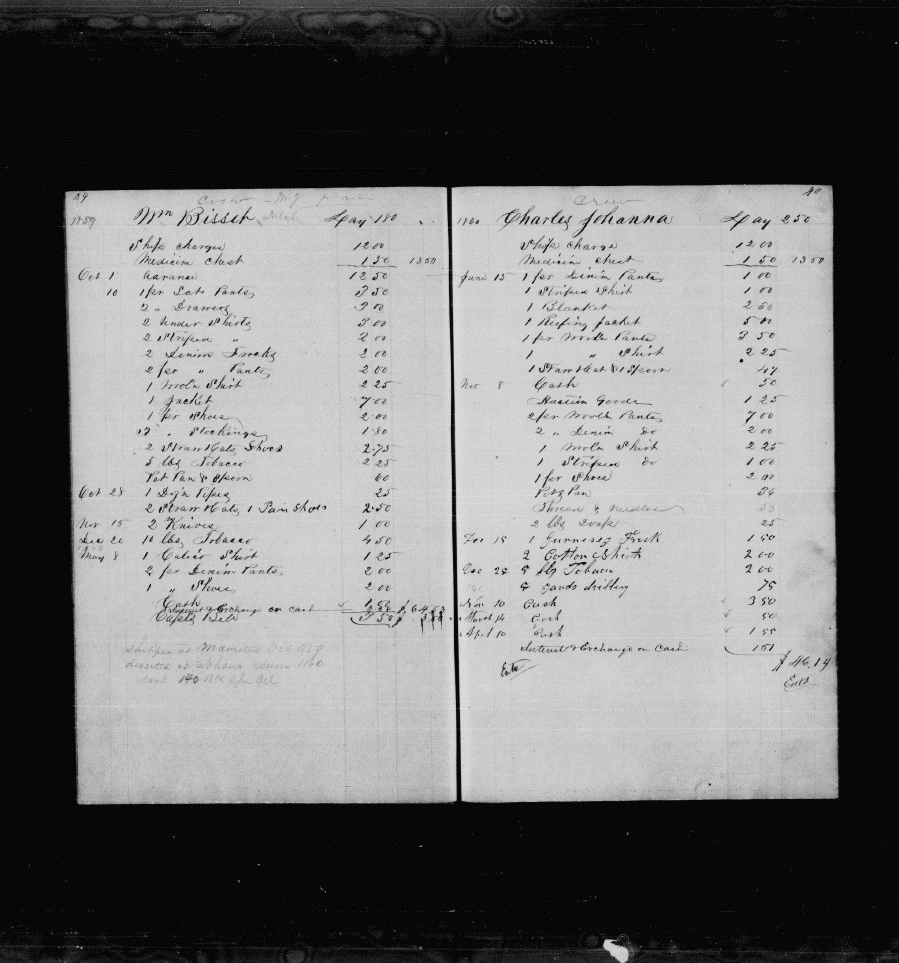 39
Crew
1859 Wm Bisset Lay 180
Ship charges 12 00
Medicin chest 1 50 13 50
Oct 1 advance 12 50
10 1 pr Sat Pants 3 50
2 " Drawers 3 00
2 Under Shirts 3 00
2 Striped " 2 00
2 Denim Frocks 2 00
2 pr " Pants 2 00
1 Wool'n Shirt 2 25
1 Jacket 7 00
1 pr Shoes 2 00
" Stockings 1 80
2 Straw Hats, Shoes 2 75
5 lbs Tobacco 2 25
Pot Pan & Spoon 60
Oct 28 1 Doz'n Pipes 25
2 Straw Hats, 1 Pair Shoes 2 50
Nov 15 2 Knives 1 00
Dec 20 10 lbs Tobacco 4 50
May 8 1 Calico Shirt 1 25
2 pr Denim Pants 2 00
1 " Shoes 2 00
Cash
Interest & Exchange on cash
Capts Bill
Shipped at Oct 1859
at Johana 1860
140 Bbls Spm Oil
40
Crew
1860 Charles Johanna Lay 250
Ship charge 12 00
Medicin chest 1 50 13 50
June 15 1 pr Denim Pants 1 00
1 Striped Shirt 1 00
1 Blanket 2 50
1 Reefing Jacket 5 00
1 pr Wool'n Pants 3 50
1 " Shirt 2 25
1 Straw Hat & 1 Spoon 47
Nov 8 Cash 50
Goods 1 25
2 pr Wool'n Pants 7 00
2 " Denim Do 2 00
1 Wool'n Shirt 2 25
1 Striped Do 1 00
1 pr Shoes 2 00
Pot & Pan
Thread & Needles 50
2 lbs Soap 25
1 Gurnesey Frock 1 50
2 Cotton Shirts 2 00
Dec 25 5 lbs Tobacco 2 00
5 yards drilling 75
Nov 10 Cash 3 50
March 14 Cash 50
April 10 Cash 1 55
Interest & Exchange on Cash 1 51
$ 46.19
Entd
Entd